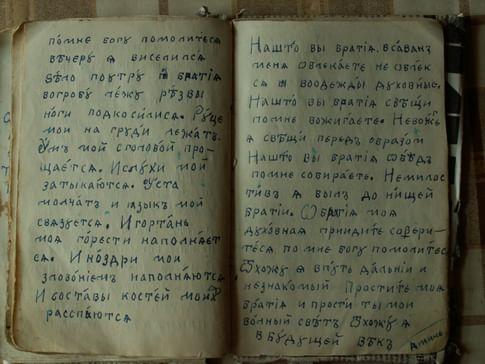 по мне богу помолитеся
вѣчеру я виселился
ѕѣло поутру я братїя
вогробу лежу рѣзвы
ноги подкосилися. Руце
мои на груди лежатъ.
Умъ мой сголовой про-
щается. Ислухи мой
затыкаются. Уста
молчатъ и языкъ мой
связуется. И гортань
моя горести наполняет
ся. И ноздри мои
зловонїемъ наполняются
И составы костей моихъ
распаются
Нашто вы братїя. всаванъ
меня облекаете не облек
ся я воодежды духовные.
Нашто вы братїя свѣщи
по мне вожигаете. Невожже
я свѣщи передъ образом
Нашто вы братїя обѣдъ
по мне собираете. Немилос
тивъ я былъ до нищей
братїи. Ѡ братїя моя
духовная прїидите соверш-
теся по мне богу помолитес
Ѿхожу я впуть дальнїи и
незнакомый Простите моя
братїя и прости ты мои
волный свѣтъ Ѿхожу я
в будущей вѣкъ
Аминь